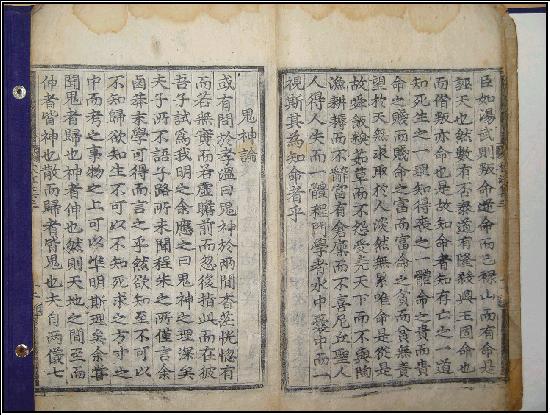 臣如湯武則叛命逆命而已祿山而有命是
誣天也然數有否泰道有隆殺興王固命也
而僭叛亦命也是故知命者知存亡之一道
知死生之一理知得喪之一體命之貴而貴
命之賤而賤命之富而富命之貧而貧無責
望於天無求取於人淡然無累唯命是從是
故而不怨受堯天下而不與陶
漁耕而不辭有倉廩而不喜尼丘聖人
人得人失而一體程門學者水中岸中而一
視斯其為知命者乎
鬼神論
或有問於孝溫曰鬼神於兩間杳茫恍惚有
而若無實而若虛瞻前而忽後指此而在彼
吾子試為我明之余應之曰鬼神之理深矣
夫子所不語子路所未聞程朱之所僅言余
鹵莽末學可得而言之乎然欲知至不可以
不知歸欲知生不可以不知死求之方寸之
中而考之事物之上可以準明斯理矣余嘗
聞鬼者歸也神者伸也然則天地之間至而
伸者皆神也散而歸者皆鬼也夫自兩儀七